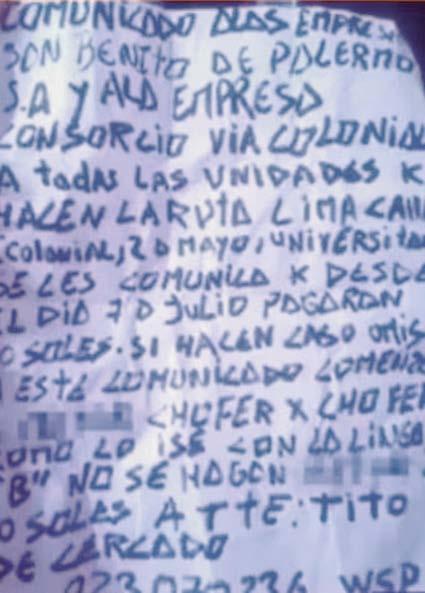 COMUNICADO ALAS EMPRESA
SAN BENITO DE PALERMO
S.A Y ALA EMPRESA
CONSORCIO VIA COLONIAL
A todas LAS UNIDADES K
HACEN LA RUTA LIMA CALL
(COlONIAL, 2 D MAYO, UNIVERSITA
SE LES COMUNICA K DESDE
EL DIA 7 D JULIO PAGARAN
O SOLES. SI HACEN CASO OMIS
A ESTE COMUNICADO COMENZA
CHOFER X CHOFER
COMO LO ISE CON LA LINEA
"B" NO SE HAGAN
O SOLES ATTE: TITO
DE CERCADO
923 070 236 WSP